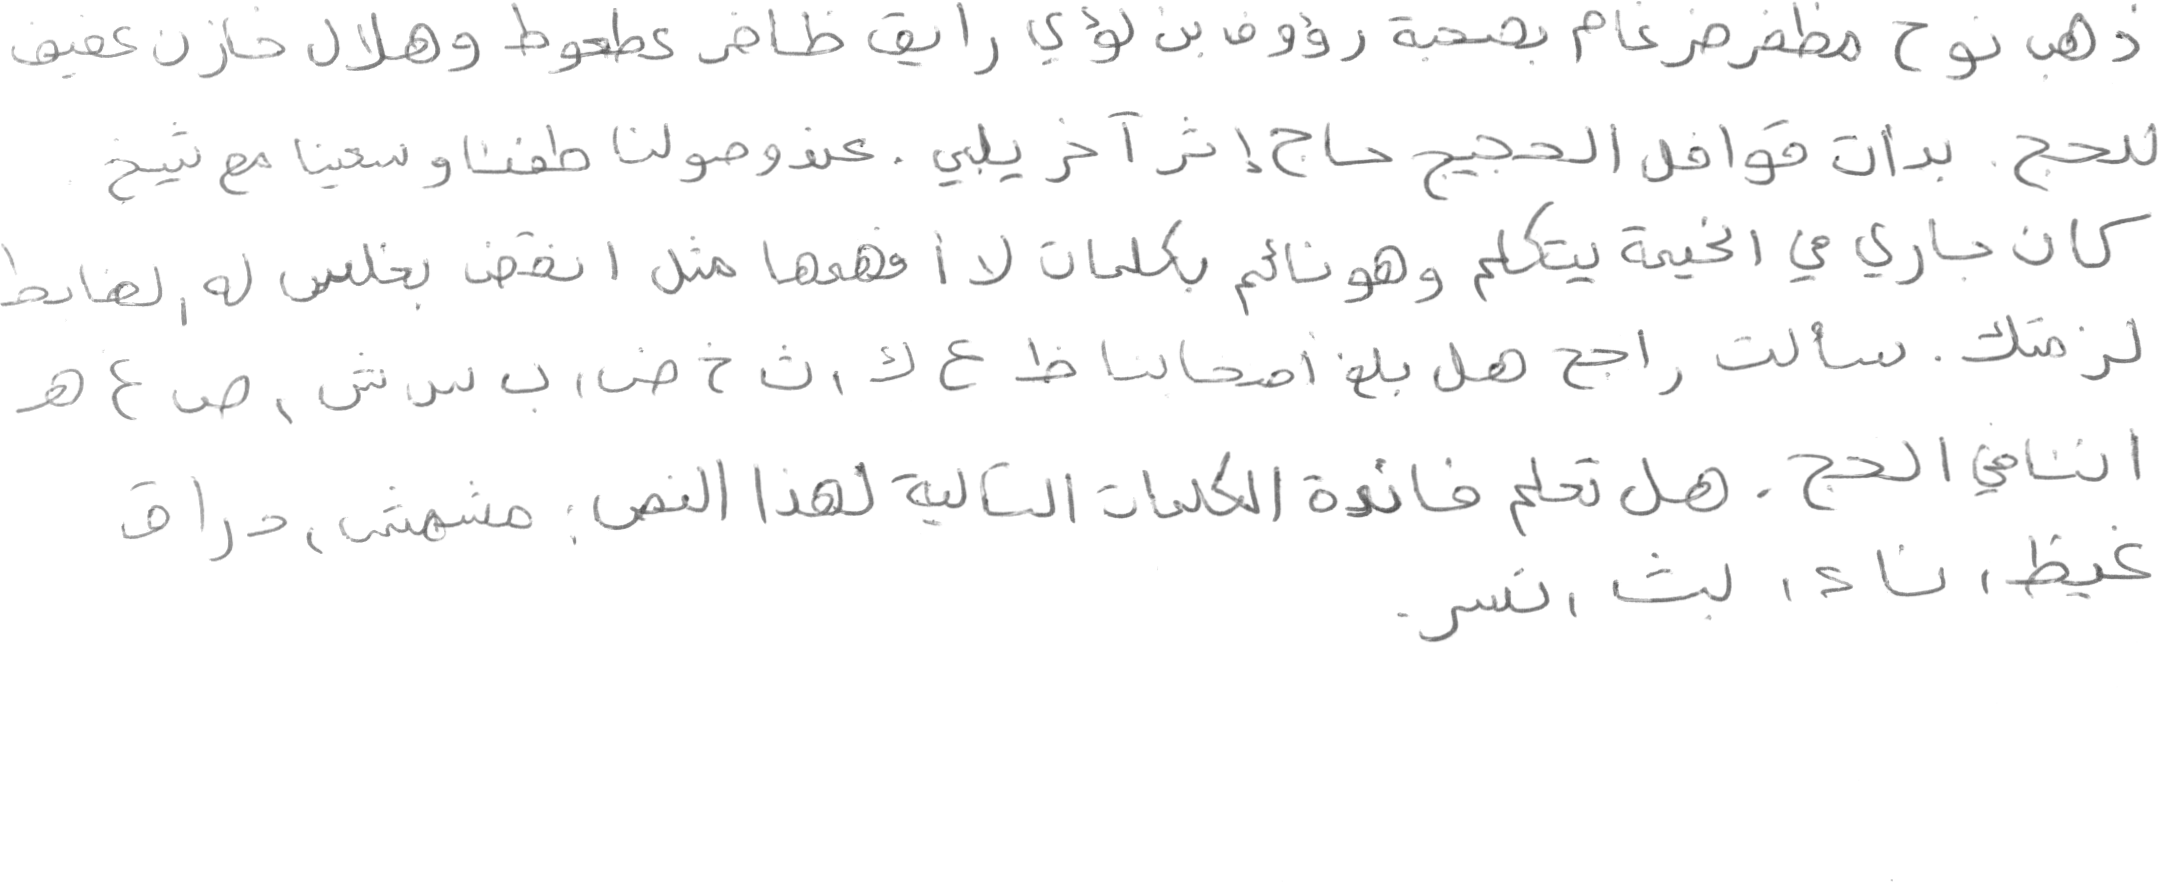 ذهب نوح مظفر ضرغام بصحبة رؤوف بن لؤي رايق ظافر عطعوط وهلال خازن عفيف
للحج. بدأت قوافل الحجيج حاج إثر آخر يلبي. عند وصولنا طفنا وسعينا مع شيخ
كان جاري في الخيمة يتكلم وهو نائم بكلمات لا أفهمها مثل انقض بغلس له، لضابط
لزمتك. سألت راجح هل بلغ أصحابنا ظ ع ك، ث خ ض، ب س ش، ص غ هـ
اننا في الحج. هل تعلم فائدة الكلمات التالية لهذا النص: مشمش، دراق
غيظ، ناء، لبث، نسر.